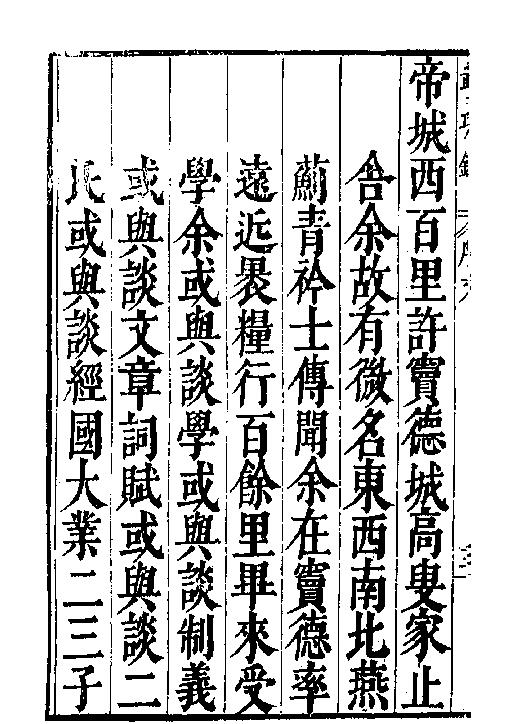 帝城西百里許竇德城高叟家止
舍余故有微名東西南北燕
薊青衿士傳聞余在竇德率
遠近畏糧行百餘里畢來受
學余或與談學或與談制義
或與談文章詞賦或與談二
氏或與談經國大業二三子